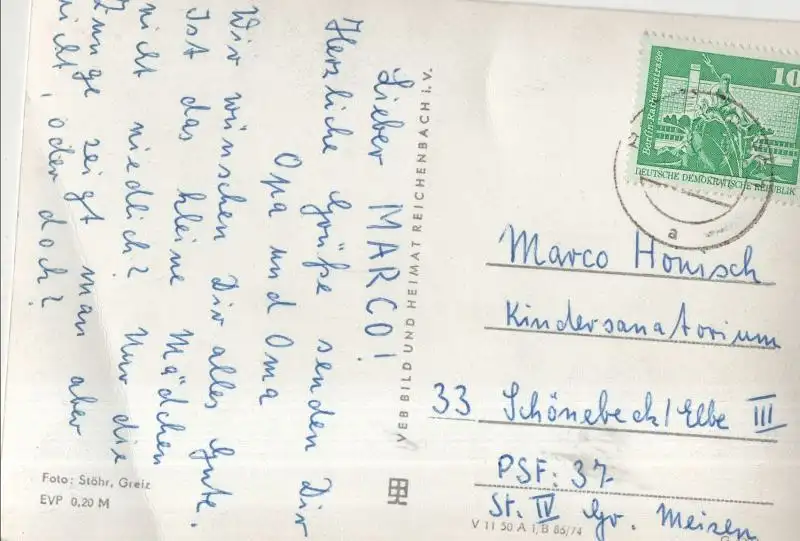 Lieber MARCO!
Herzliche Grüße senden Dir
Opa und Oma
Wir wünschen Dir alles Gute.
Ist das kleine Mädchen
nicht niedlich? Nur die
Zunge zeigt man aber
nicht, oder doch?
Foto: Stöhr, Greiz
EVP 0,20 M
VEB BILD UND HEIMAT REICHENBACH i. V.
10
Berlin-Rathausstraße
DEUTSCHE DEMOKRATISCHE REPUBLIK
a
Marco Honisch
Kindersanatorium
33 Schönebeck/Elbe III
PSF: 37
St. IV Gr. Meisen
V 11 50 A 1, B 85/74